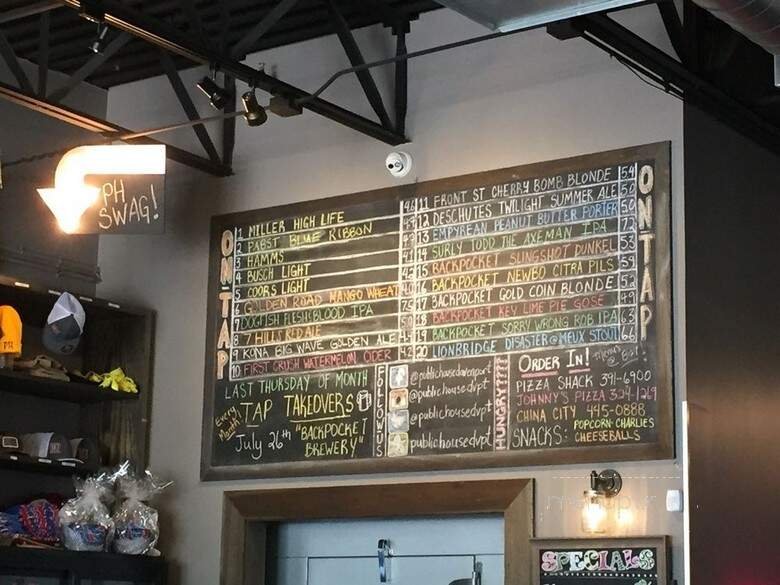 PH
SWAG!
ON TAP
1 MILLER HIGH LIFE
2 PABST BLUE RIBBON
3 HAMMS
4 BUSCH LIGHT
5 COORS LIGHT
6 GOLDEN ROAD MANGO WHEAT
7 DOGFISH FLESH BLOOD IPA
8 7 HILLS RED ALE
9 KONA BIG WAVE GOLDEN ALE
10 FIRST CRUSH WATERMELON CIDER 42
11 FRONT ST CHERRY BOMB BLONDE 54
12 DESCHUTES TWILIGHT SUMMER ALE 50
13 EMPYREAN PEANUT BUTTER PORTER
14 SURLY TODD THE AXEMAN IPA
15 BACKPOCKET SLINGSHOT DUNKEL 53
16 BACKPOCKET NEWBO CITRA PILS
17 BACKPOCKET GOLD COIN BLONDE
18 BACKPOCKET KEY LIME PIE GOSE
19 BACKPOCKET SORRY WRONG ROB IPA
20 LIONBRIDGE DISASTER @ MEUX STOUT
ON TAP
LAST THURSDAY OF MONTH
Every Month!
TAP TAKEOVERS
July 26th "BACKPOCKET
BREWERY"
FOLLOW US
@publichousedavenport
@publichousedvpt
@publichousedvpt
publichousedvpt
HUNGRY????
ORDER IN!
PIZZA SHACK 391-6900
JOHNNY'S PIZZA 324-1269
CHINA CITY 445-0888
SNACKS: POPCORN-CHARLIES
CHEESEBALLS
SPECIALS